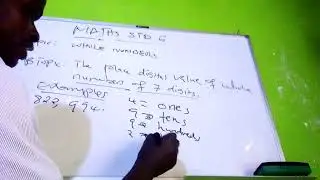 MATHS STD 6
WHOLE NUMBERS
The place digits value of whole
numbers of 7 digits
Examples
823,994.
4 = ones
9 = tens
9 = hundreds